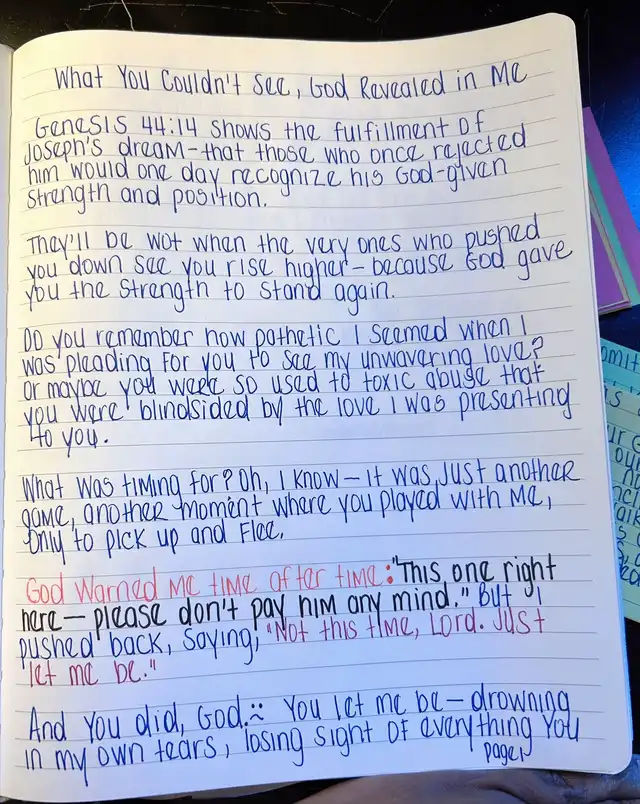 What You Couldn't See, God Revealed in Me
Genesis 44:14 shows the fulfillment of
Joseph's dream—that those who once rejected
him would one day recognize his God-given
strength and position.
They'll be wot when the very ones who pushed
you down see you rise higher—because God gave
you the strength to stand again.
Do you remember how pathetic I seemed when I
was pleading for you to see my unwavering love?
Or maybe you were so used to toxic abuse that
you were blindsided by the love I was presenting
to you.
What was timing for? Oh, I know—it was just another
game, another moment where you played with me,
only to pick up and flee.
God warned me time after time: "This one right
here—please don't pay him any mind." But I
pushed back, saying, "Not this time, Lord. Just
let me be."
And you did, God. :( You let me be—drowning
in my own tears, losing sight of everything you
page 1
omit